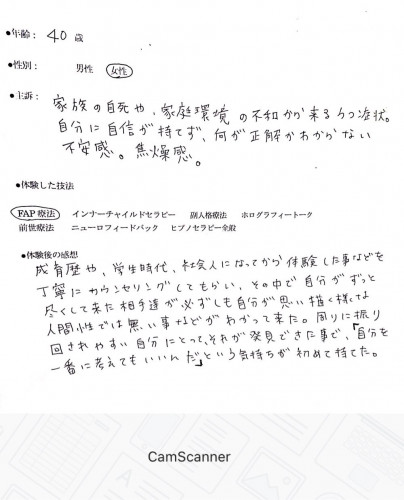 ●年齢： 40 歳
●性別： 男性 女性
●主訴： 家族の自死や、家庭環境の不和から来るうつ症状。
自分に自信が持てず、何が正解かわからない
不安感。焦燥感。
●体験した技法
FAP療法 インナーチャイルドセラピー 副人格療法 ホログラフィートーク
前世療法 ニューロフィードバック ヒプノセラピー全般
●体験後の感想
成育歴や、学生時代、社会人になってから体験した事などを
丁寧にカウンセリングしてもらい、その中で自分がずっと
尽くして来た相手達が必ずしも自分が思い描く様な
人間性では無い事などがわかって来た。周りに振り
回されやすい自分にとって、それが発見できた事で、「自分を
一番に考えてもいいんだ」という気持ちが初めて持てた。
CamScanner